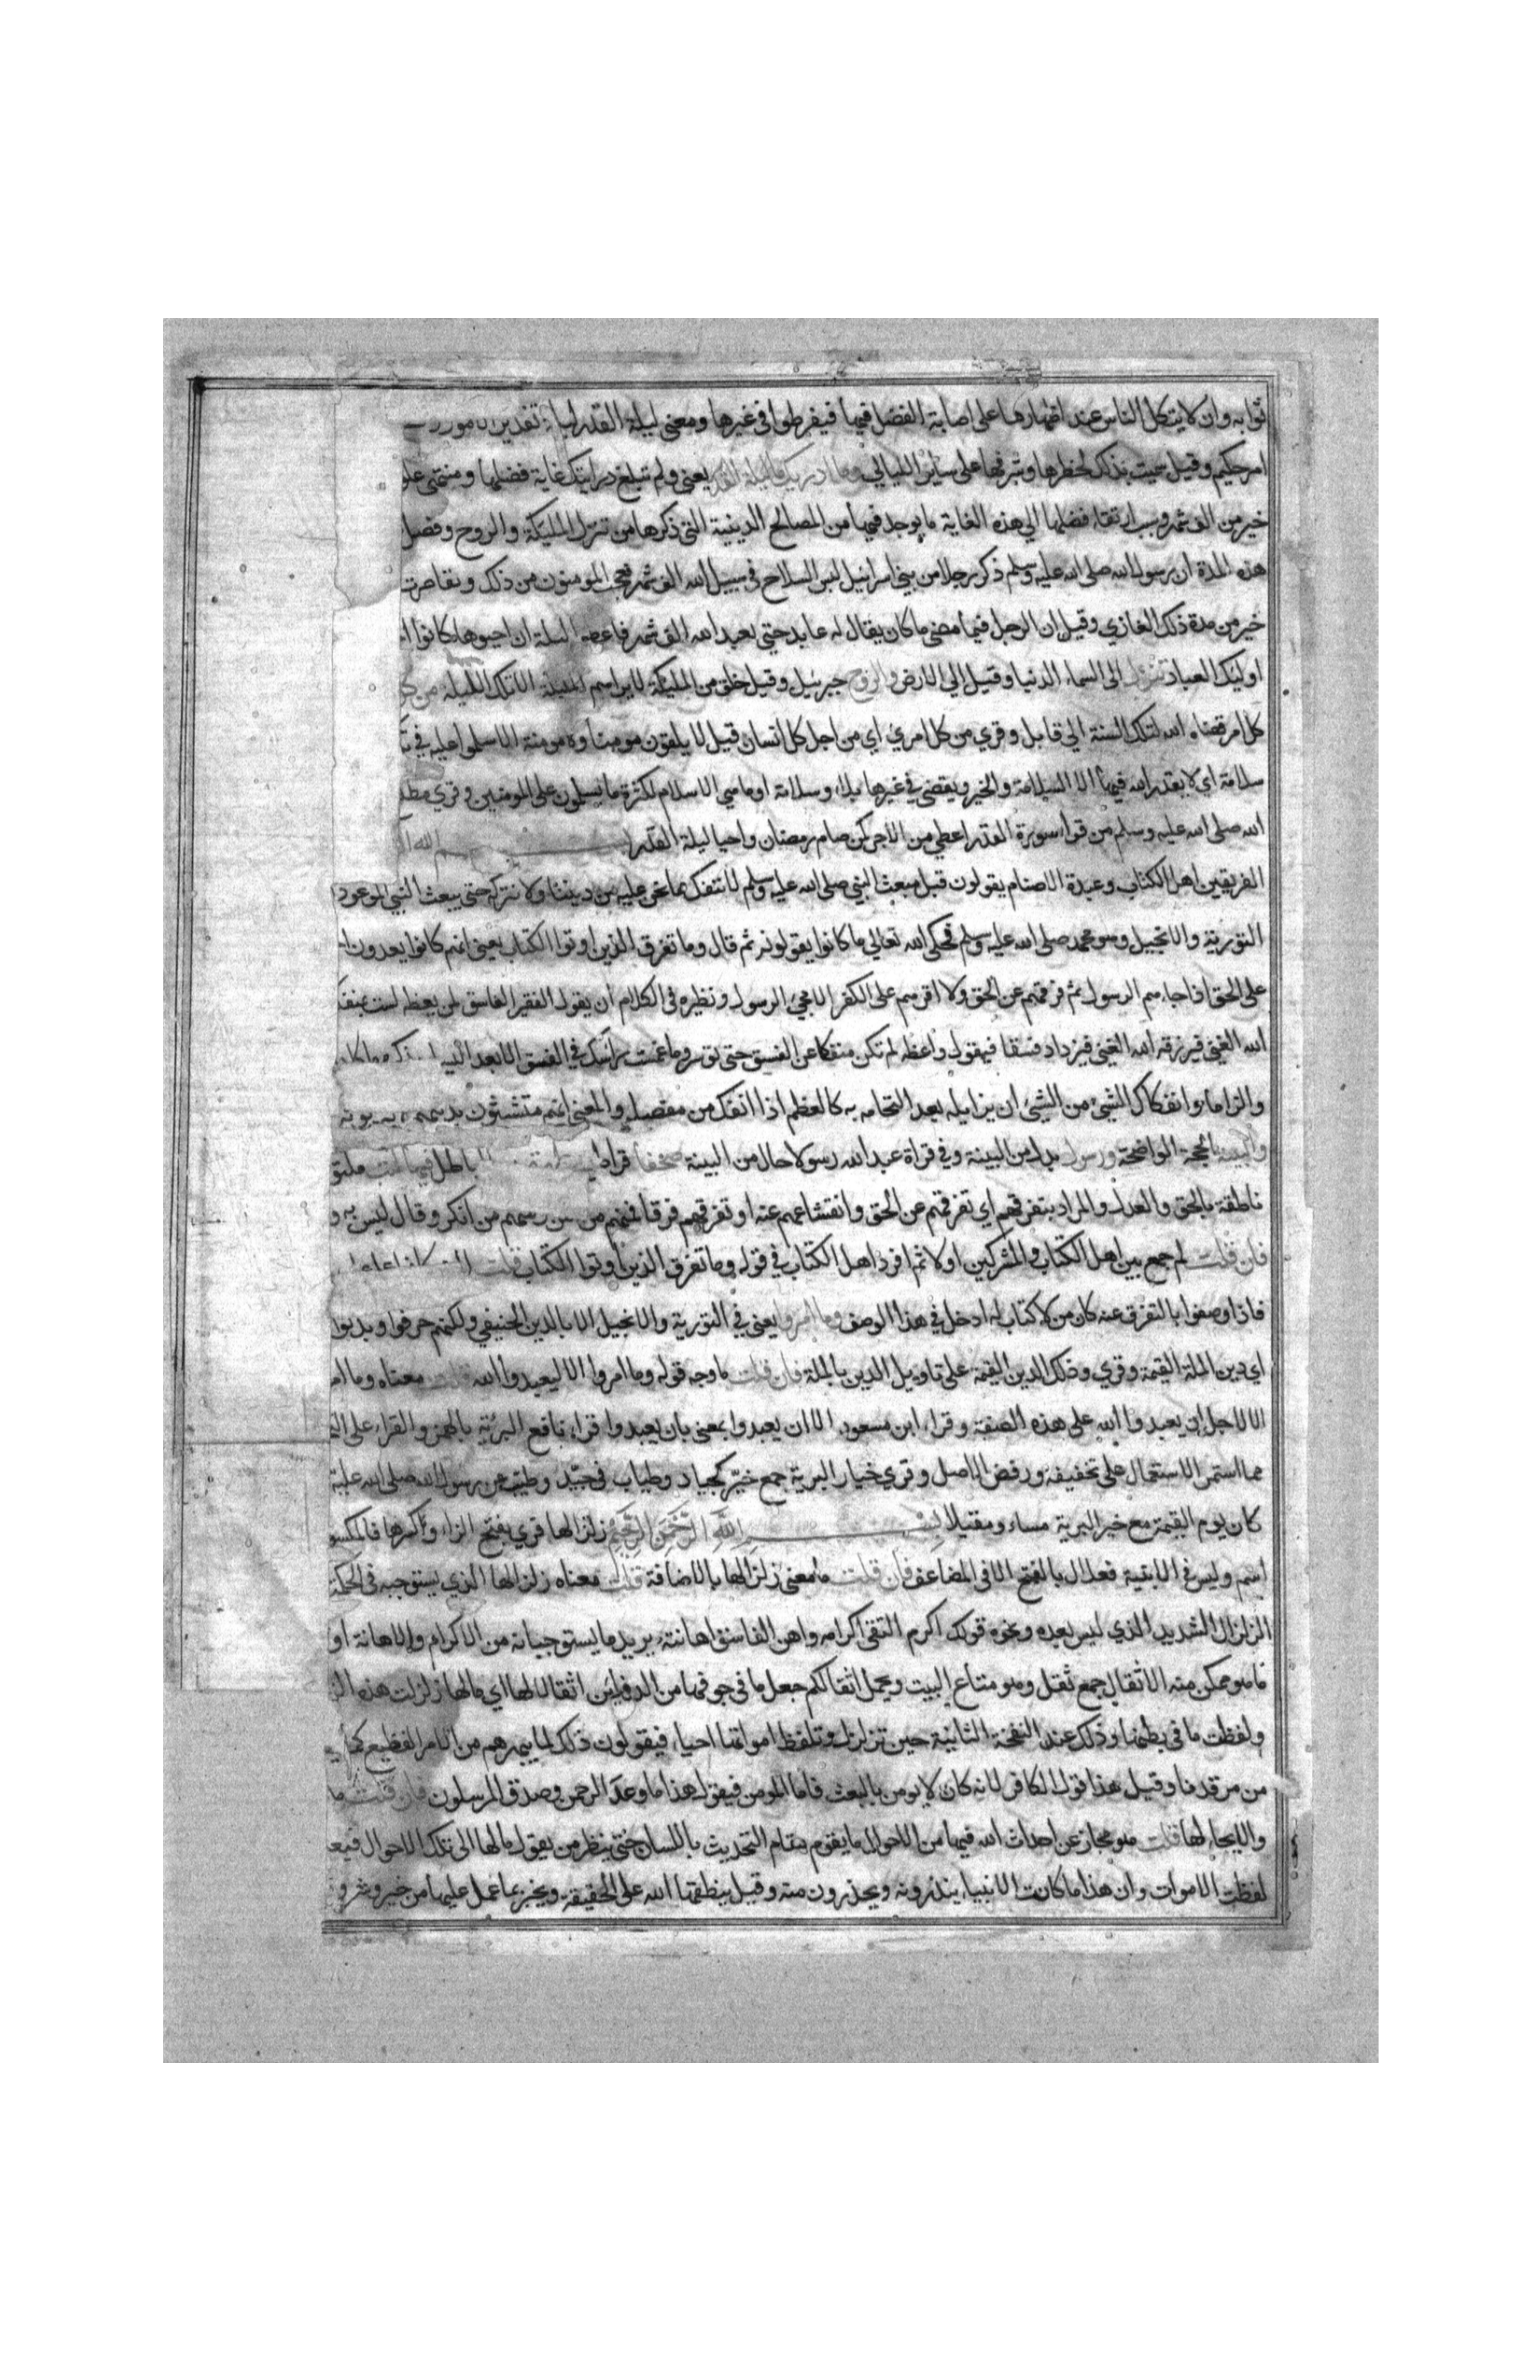 ثوابه وان لا يتكل الناس عند اظهارها على اصابة الفضل فيها فيفرطوا في غيرها ومعنى ليلة القدر ليلة تقدير الامور
امر حكيم وقيل سميت بذلك لخطرها وشرفها على ساير الليالي وما ادريك ما ليلة القدر يعني ولم تبلغ درايتك غاية فضلها ومنتهى علو
خير من الف شهر وسبب ارتقاء فضلها الي هذه الغاية ما يوجد فيها من المصالح الدينية التي ذكرها من تنزل المليكة والروح وفصل
هذه المدة ان رسول الله صلى الله عليه وسلم ذكر رجلا من بني اسرائيل لبس السلاح في سبيل الله الف شهر فعجب المومنون من ذلك وتقاصرت
خير من مدة ذلك الغازي وقيل ان الرجل فيما مضى ما كان يقال له عابد حتي يعبد الله الف شهر فاعطوا ليلة ان احيوها كانوا
اوليك العباد تنزل الى السماء الدنيا وقيل الي الارض والروح جبريل وقيل خلق من المليكة لا يراهم المليكة الا تلك الليلة من
كل امر قضاه الله لتلك السنة الي قابل وقري من كل امرئ اي من اجل كل انسان قيل لا يلقون مومنا ولا مومنة الا سلموا عليه في
سلامة اي لا يقدر الله فيها الا السلامة والخير ويقضي في غيرها بلاء وسلامة او ما هي الا سلام لكثرة ما يسلمون على المومنين وقري مطلع
الله صلى الله عليه وسلم من قراء سورة القدر اعطي من الاجر كمن صام رمضان واحيا ليلة القدر بسم الله
الفريقين اهل الكتاب وعبدة الاصنام يقولون قبل مبعث النبي صلى الله عليه وسلم لا ننفك مما نحن عليه من ديننا ولا نتركه حتى يبعث النبي الموعود
التورية والانجيل وهو محمد صلى الله عليه وسلم فحكى الله تعالي ما كانوا يقولونه ثم قال وما تفرق الذين اوتوا الكتاب يعني انهم كانوا يعدون
على الحق اذا جاءهم الرسول ثم فرقهم عن الحق ولا اقرهم على الكفر الا مجيء الرسول ونظيره في الكلام ان يقول الفقير الفاسق لمن يعظه لست بمنفك
الله الغنى فيرزقه الله الغنى فيزداد فسقا فيقول واعظه لم تكن منفكا عن الفسق حتى توسر وما غمست راسك في الفسق الا بعد اليسار
والزاما وانفكاك الشيء من الشيء ان يزايله بعد التحامه به كالعظم اذا انفك من مفصله والمعنى انهم متشبثون بدينهم
والبينة الحجة الواضحة ورسول بدل من البينة وفي قراة عبد الله رسولا حال من البينة صحفا قراطيس باطل فيها كتب مكتوبة
ناطقة بالحق والعدل والمراد بتفرقهم اي تفرقهم عن الحق وانقشاعهم عنه او تفرقهم فرقا فمنهم من امن ومنهم من انكر وقال ليس به
فان قلت لم جمع بين اهل الكتاب والمشركين اولا ثم افرد اهل الكتاب في قوله وما تفرق الذين اوتوا الكتاب قلت
فاذا وصفوا بالتفرق عنه كان من لا كتاب له ادخل في هذا الوصف وما امروا يعني في التورية والانجيل الا بالدين الحنيفي ولكنهم حرفوا وبدلوا
اي دين الملة القيمة وقري وذلك الدين القيمة على تاويل الدين بالملة فان قلت ما وجه قوله وما امروا الا ليعبدوا الله قلت معناه وما
الا لاجل ان يعبدوا الله على هذه الصفة وقراء ابن مسعود الا ان يعبدوا بمعنى بان يعبدوا قراء نافع البرئية بالهمز والقراء على
مما استمر الاستعمال على تخفيفه ورفض الاصل وقري خيار البرية جمع خير كجياد وطياب في جيد وطيب عن رسول الله صلى الله عليه
كان يوم القيمة مع خير البرية مساء ومقيلا بسم الله الرحمن الرحيم زلزالها قري بفتح الزاء وكسرها فالمكسور
اسم وليس في الابنية فعلال بالفتح الا في المضاعف فان قلت ما معنى زلزالها بالاضافة قلت معناه زلزالها الذي يستوجبه في الحكمة
الزلزال الشديد الذي ليس بعده ونحوه قولك اكرم التقي اكرامه واهن الفاسق اهانته يريد ما يستوجبانه من الاكرام والاهانة او
ما هو ممكن منه الاثقال جمع ثقل وهو متاع البيت وتحمل اثقالكم جعل ما في جوفها من الدفاين اثقالا لها اي ما لها زلزلت هذه
ولفظت ما في بطنها وذلك عند النفخة الثانية حين تزلزل وتلفظ امواتها احياء فيقولون ذلك لما يبهرهم من الامر الفظيع كما
من مرقدنا وقيل هذا قول الكافر لانه كان لا يومن بالبعث فاما المومن فيقول هذا ما وعد الرحمن وصدق المرسلون فان قلت ما
والايحاء لها قلت هو مجاز عن احداث الله فيها من الاحوال ما يقوم مقام التحديث باللسان حتى ينظر من يقول ما لها الى تلك الاحوال فيعلم
لفظت الاموات وان هذا ما كانت الانبياء ينذرونه ويحذرون منه وقيل ينطقها الله على الحقيقة ويخبر بما عمل عليها من خير وشر